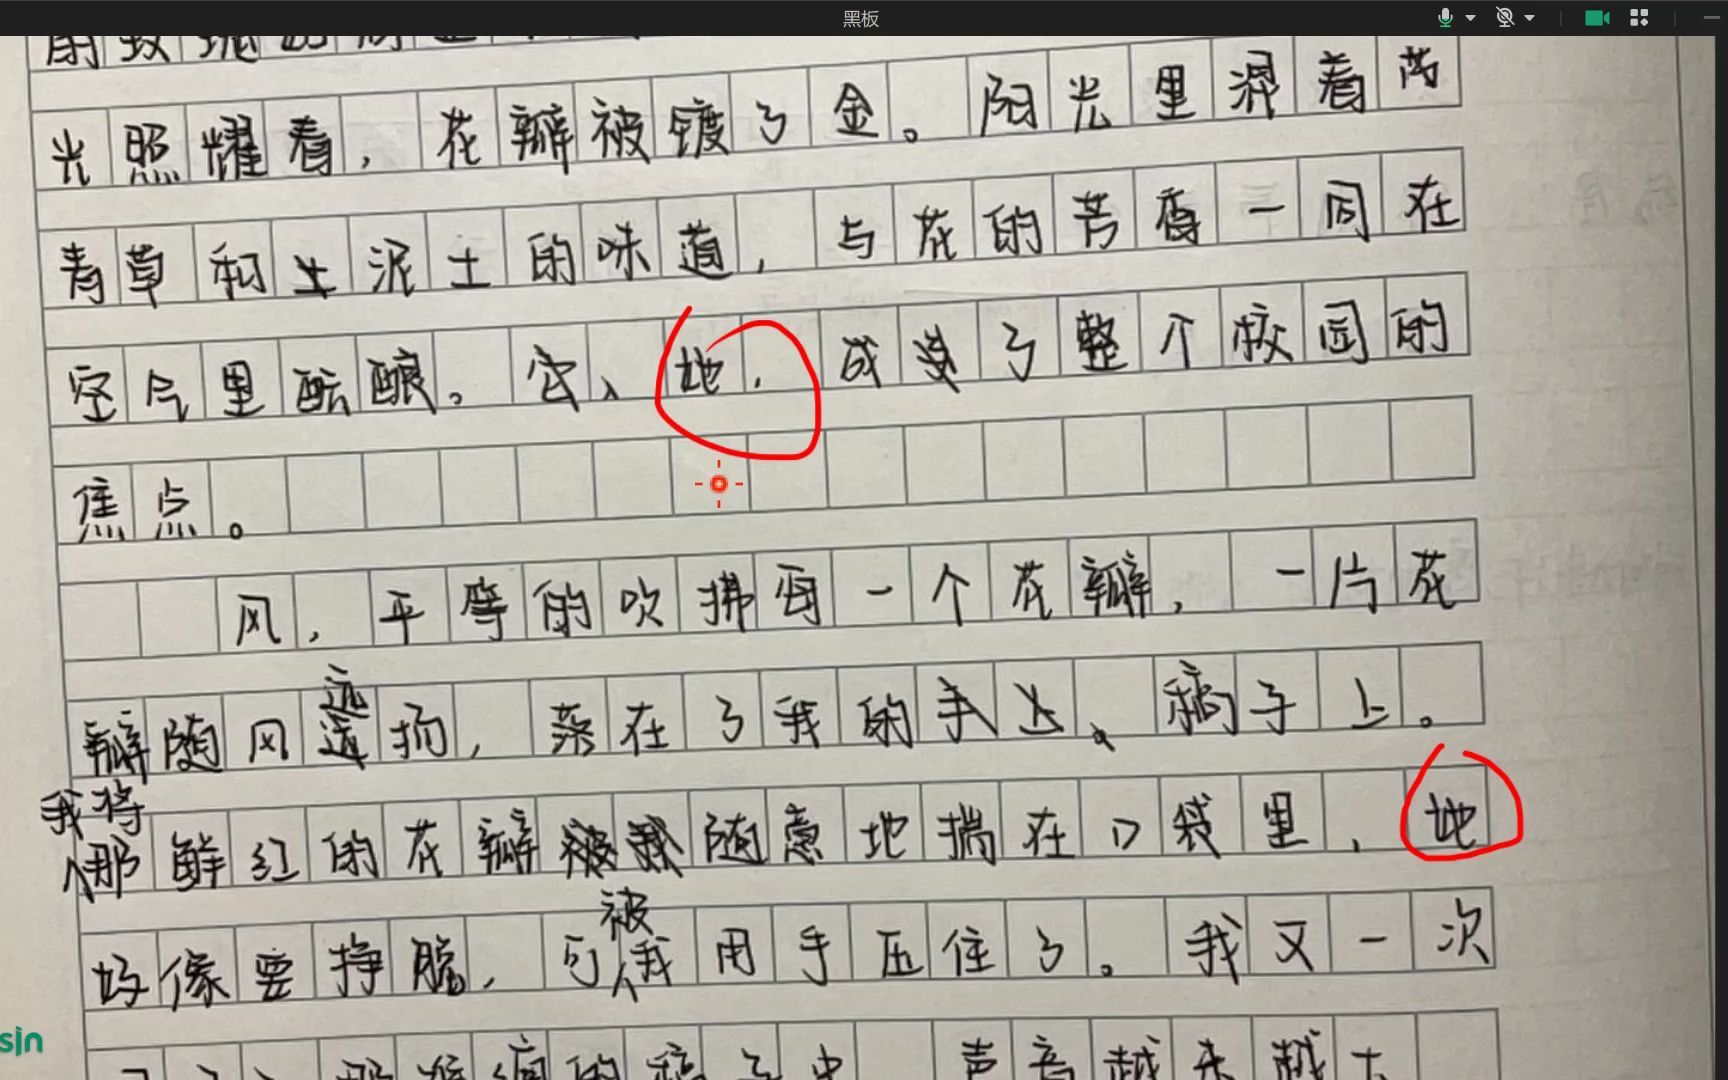 黑板
光照耀着，花瓣被镀了金。阳光里混着芮
青草和泥土的味道，与花的芳香一同在
空气里酝酿。它、她，成了整个校园的
焦点。
风，平等的吹拂每一个花瓣，一片花
瓣随风远扬，落在了我的手上、稿子上。
我将那鲜红的花瓣随意地揣在口袋里，她
好像要挣脱，可被我用手压住了。我又一次
声音越来越大